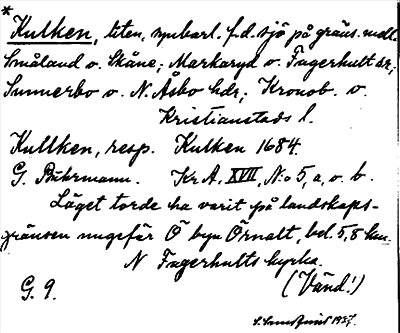 *
Kulken, liten, synbarl. f.d. sjö på gräns. mell.
Småland o. Skåne; Markaryd o. Fagerhult sn;
Sunnerbo o. N. Åsbo hds; Kronob. o.
Kristianstads l.
Kullken, resp. Kulken 1684.
G. Buhrmann. Kr A, XVII, No 5, a, o. b.
Läget torde ha varit på landskaps-
gränsen ungefär Ö byn Örnalt, bel. 5,8 km
N Fagerhults kyrka.
G. 9. (Vänd!)